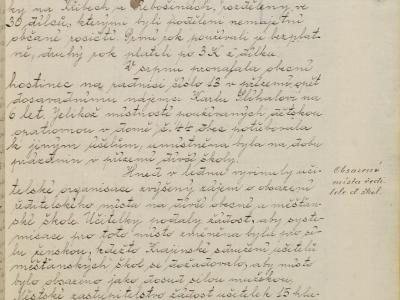 ky na Klibech a Třebošinách, rozděleny ve
30 dílců, kterými byli poděleni nemajetní
občané rosičtí. První rok používali je bezplat-
ně, druhý rok platili po 3 K z dílku.
V srpnu pronajala obecní
hostinec na radnici číslo 13 v přízemí, opět
dosavadnímu nájemci Karlu na
6 let. Jelikož místností používaných dětskou
opatrovnou v domě č. 44 obec potřebovala
k jiným účelům, umístěna byla na dobu
prázdnin v přízemí dívčí školy.
Hned v lednu vyvinuly uči-
telské organisace zvýšený zájem o obsazení
ředitelského místa na dívčí obecné a měšťan-
ské škole. Učitelky podaly žádost, aby syste-
misace pro toto místo změněna byla pro sí-
lu ženskou, kdežto Krajinské sdružení učitelů
měšťanských škol se dožadovalo, aby místo
bylo obsazeno jako dosud silou mužskou.
Městské zastupitelstvo žádost učitelek 15 hla-
Obsazení
místa ředi-
tele d. škol.